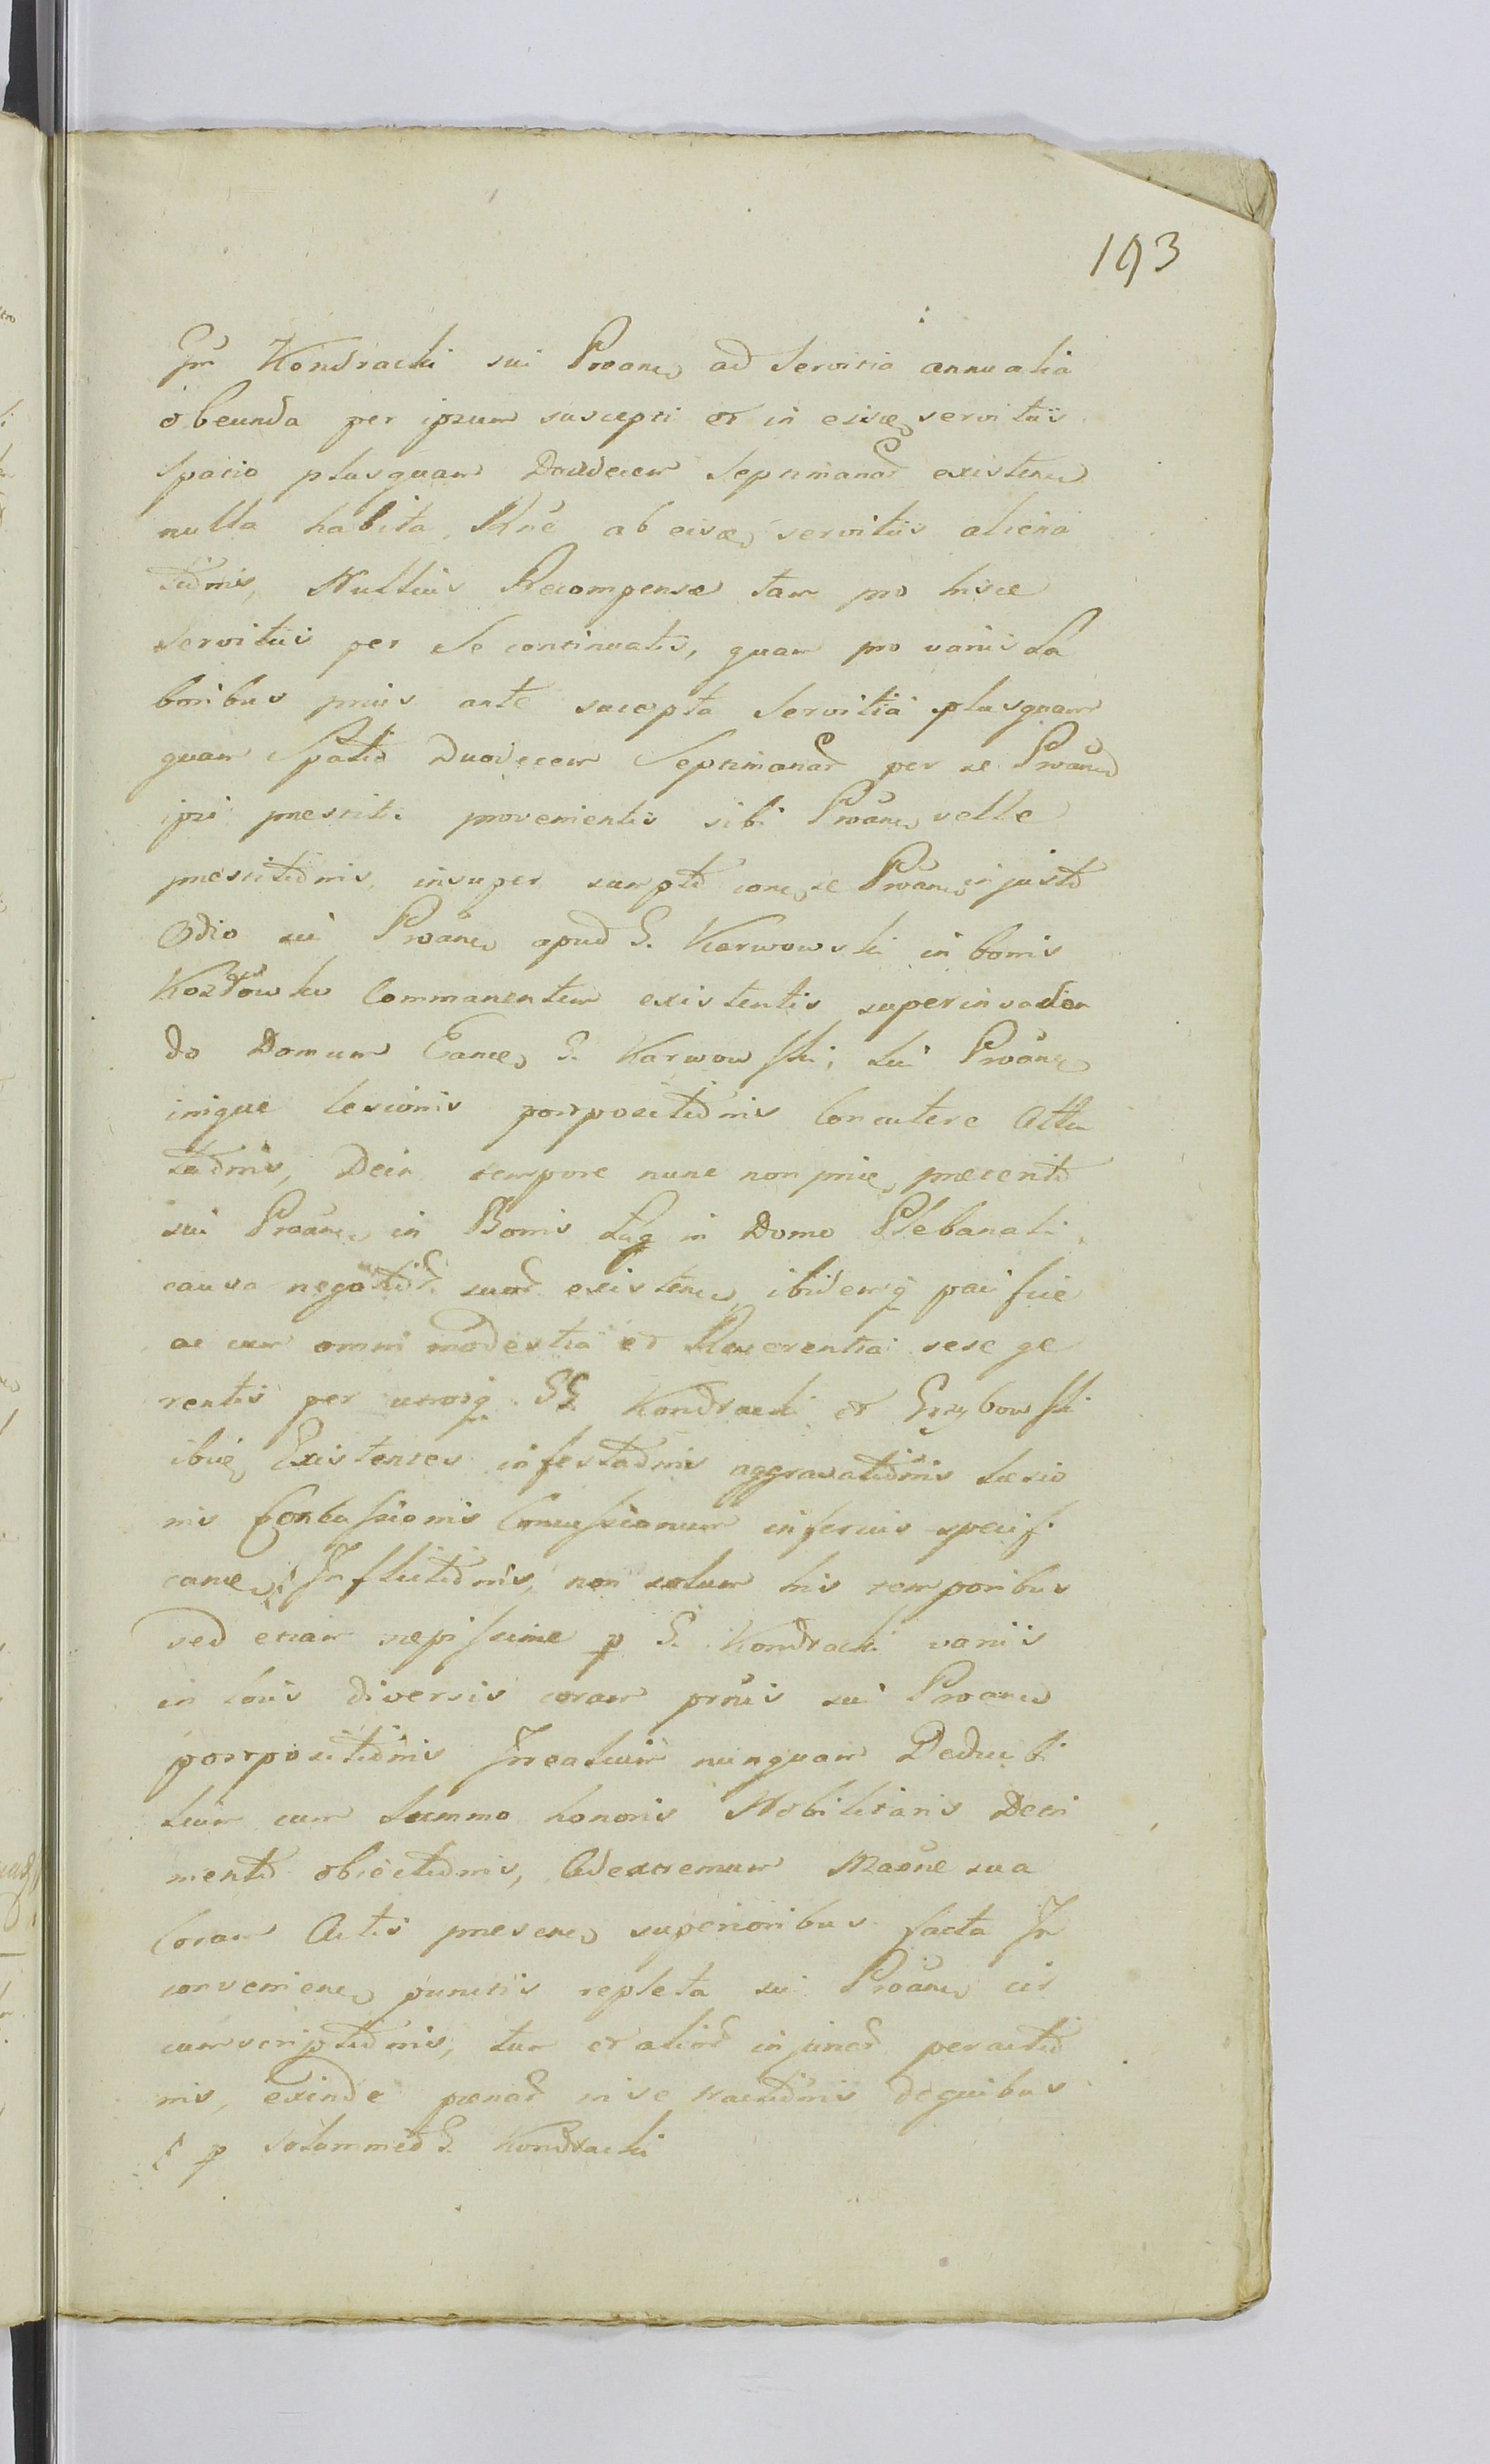 193
Kondracki sui Proanẽ ad servitia annualia
obeunda per ipsum suscepti et in servitiis
spacio plusquam Septimanar existenẽ
nulla habita, Rnẽ ab servitiis aliena
tiõnis, Nullius Recompensæ tam pro hisce
servitiis per se continuatis, quam pro variis La
boribus prius ante suscepta servitia plusquam
quam Spatio Duodecem Septimanar per se Proanẽ
ipsi provenientis sibi Proanẽ velle
insuper injusto
Odio sui Proanẽ apud G. Karwowski in bonis
Commanentem existentis superinvaden
do Domum G. Karwowski, sui Proanẽ
inique lesionis postpositiõnis Concutere Atten
tatiõnis, Dein tempore nunc non præterito
sui Proanẽ in Bonis Ług in Domo Plebanali
causa negotior suor existenẽ, ibidemq pacifice
ac cum omni modestia et Reverentia sese ge
rentis per utrosq GG Kondracki et Grzybowski
Existentes infestatiõnis aggravatiõnis Læsio
nis Contussionis Concussionum inferius specifi
Inflictiõnis, non solum his temporibus
sed etiam sæpissime p G. Kondracki variis
in locis diversis coram sui Proanẽ
postpositiõnis nunquam Deduci bi
lium cum summo honoris Nobilitaris Detri
mento obiectiõnis, Adextremum sua
Coram Actis superioribus facta In
punctis repleta sui Proanẽ cir
cumscriptiõnis, tum et alior injuriar peractio
nis, exinde pænar in se tractiõnis de quibus
p solummodo G. Kondracki